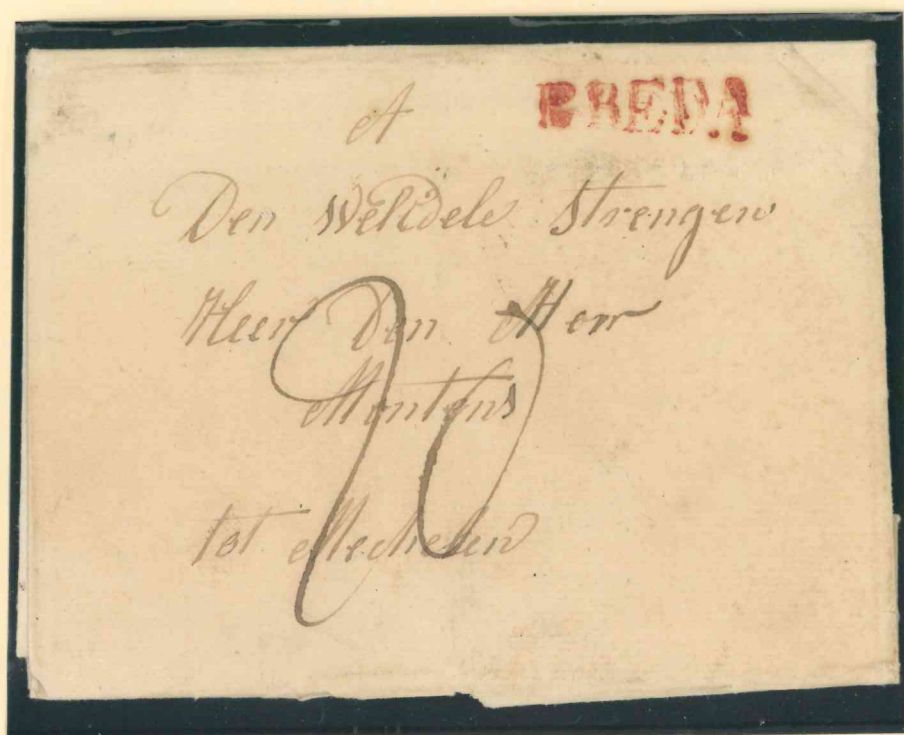 BREDA
A
Den WelEdele Strengen
Heer Den Heer
Montens
tot Mechelen
20